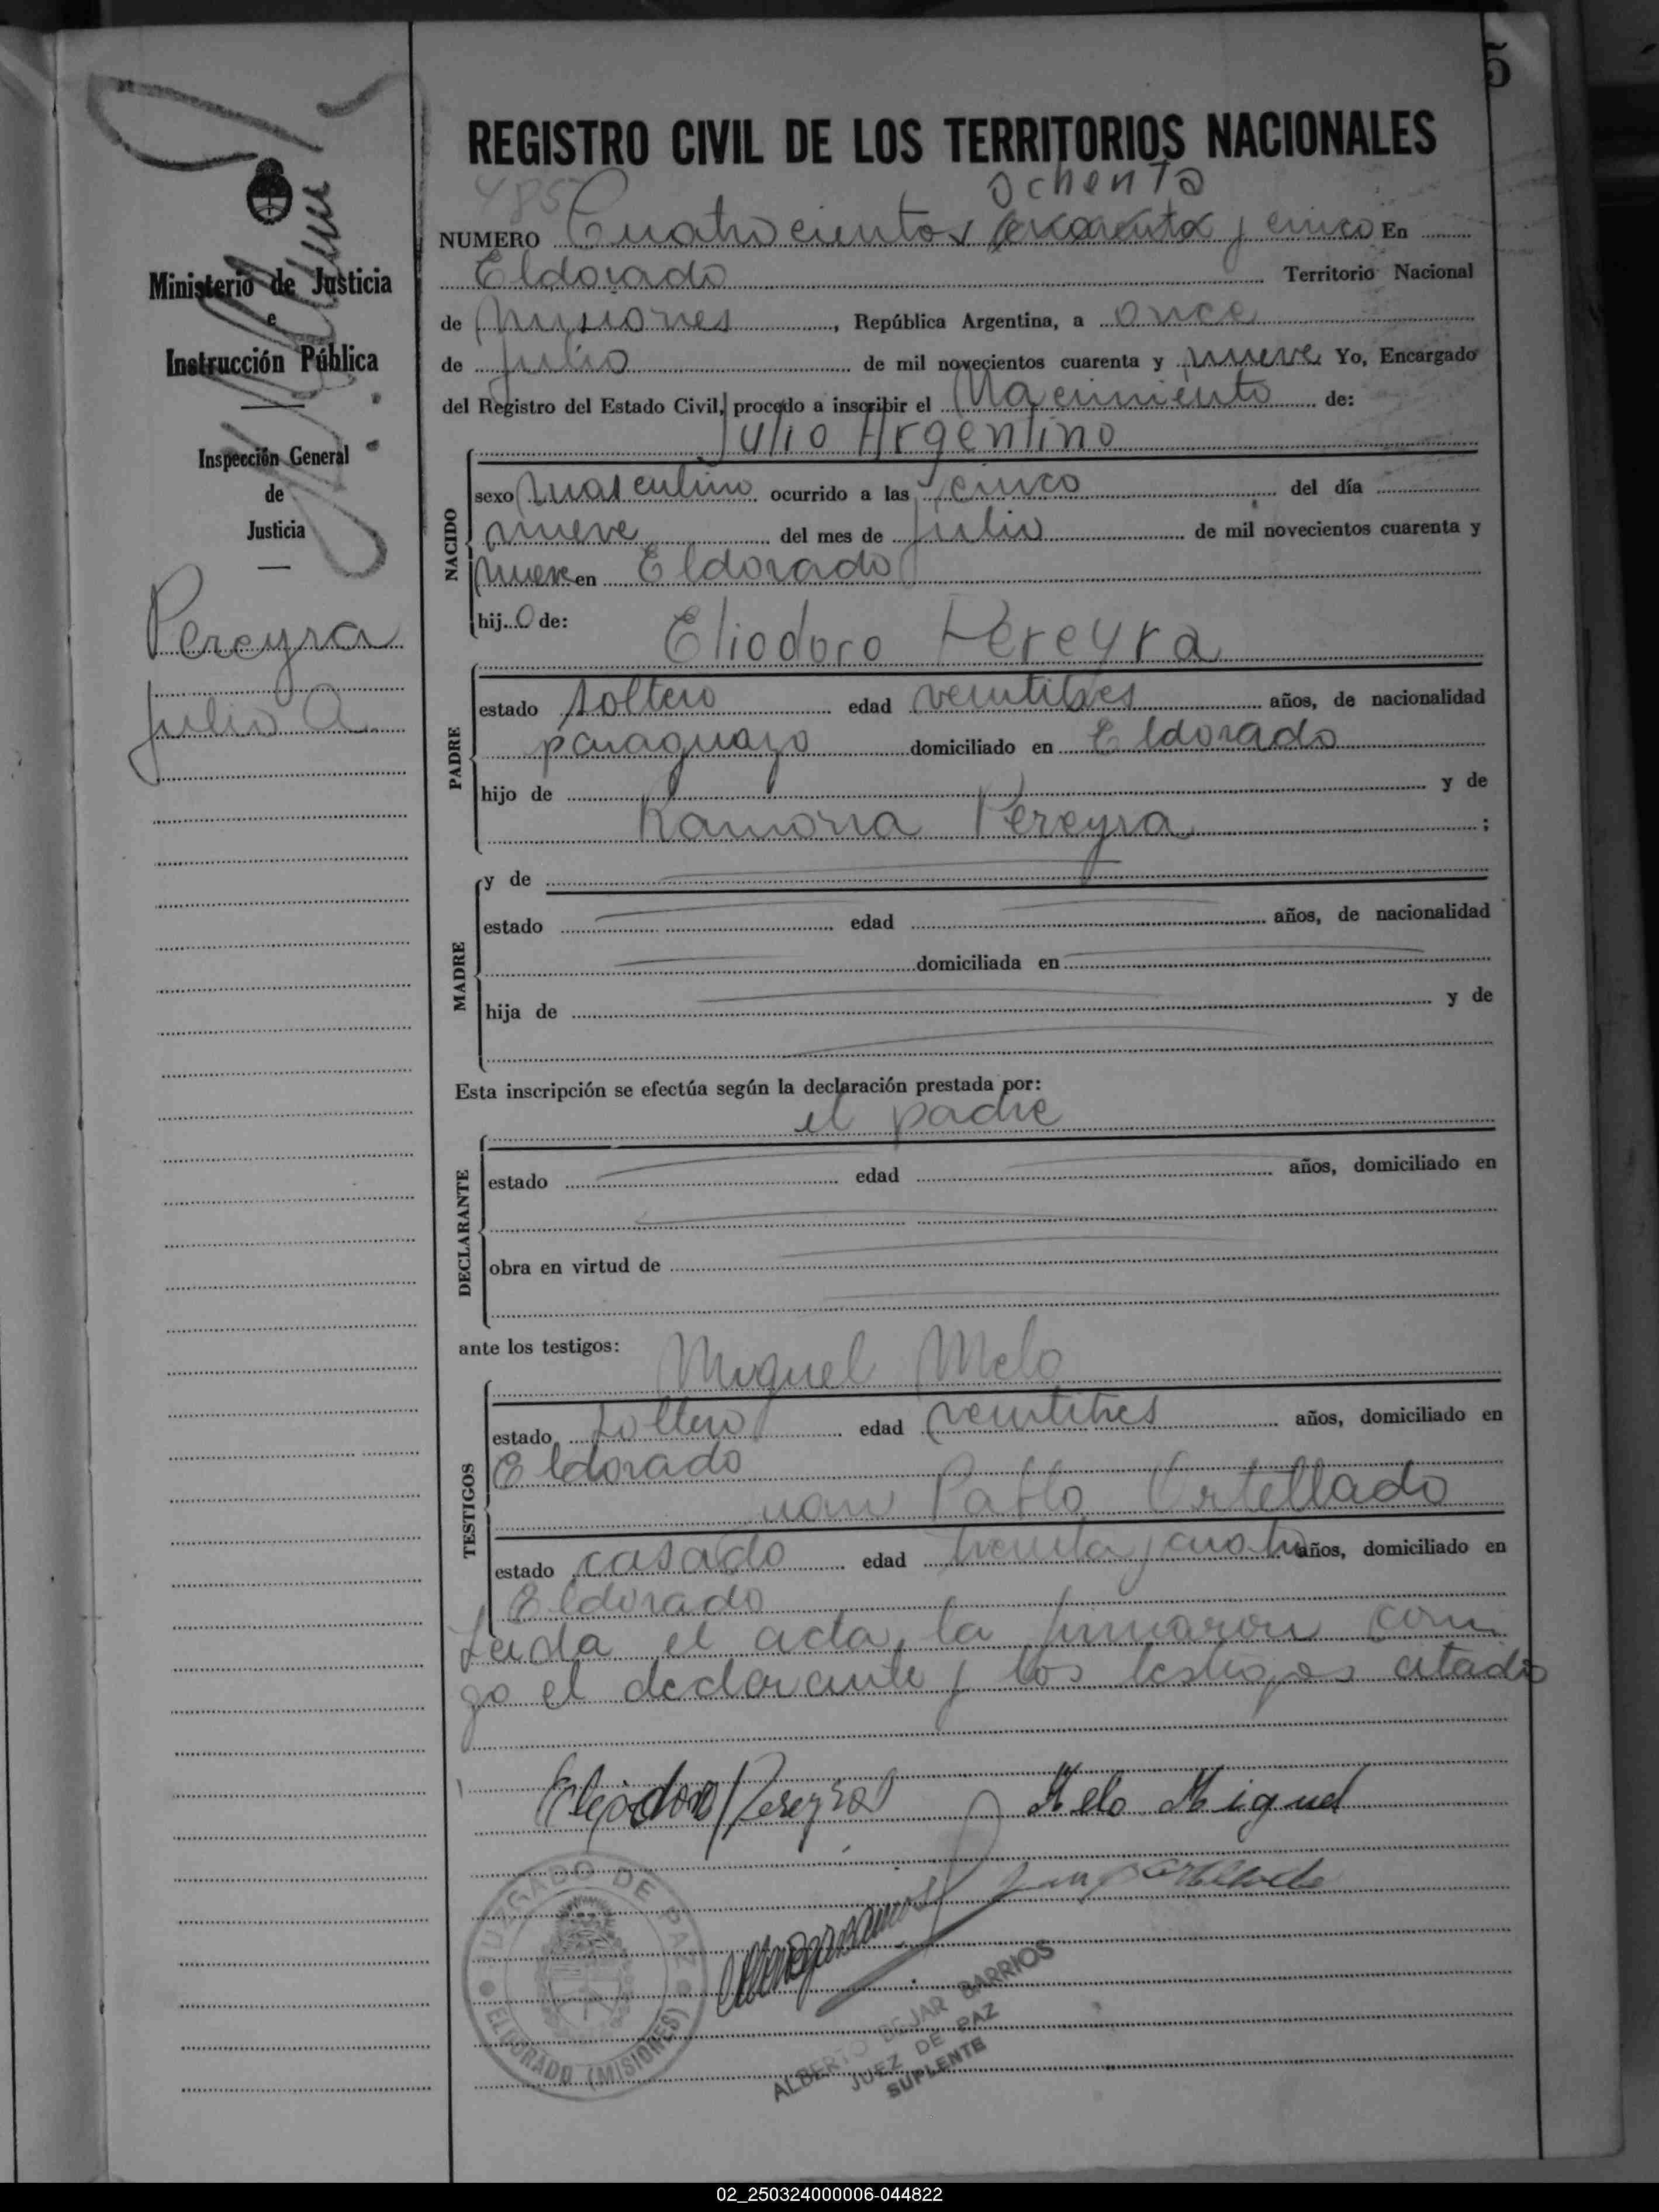 5
REGISTRO CIVIL DE LOS TERRITORIOS NACIONALES
485
ochenta
NUMERO Cuatrocientos y cinco En
Eldorado Territorio Nacional
de Misiones, República Argentina, a once
de julio de mil novecientos cuarenta y nueve Yo, Encargado
del Registro del Estado Civil, procedo a inscribir el Nacimiento de:
Julio Argentino
NACIDO
sexo masculino ocurrido a las cinco del día
nueve del mes de julio de mil novecientos cuarenta y
nueve en Eldorado
hijo de:
Eliodoro Pereyra
PADRE
estado soltero edad veintitres años, de nacionalidad
paraguayo domiciliado en Eldorado
hijo de y de
Ramona Pereyra ;
MADRE
y de
estado edad años, de nacionalidad
domiciliada en
hija de y de
Esta inscripción se efectúa según la declaración prestada por:
el padre
DECLARANTE
estado edad años, domiciliado en
obra en virtud de
ante los testigos:
Miguel Melo
TESTIGOS
estado soltero edad veintitres años, domiciliado en
Eldorado
Juan Pablo Ortellado
estado casado edad treinta y cuatro años, domiciliado en
Eldorado
Leida el acta, la firmaron conmi
go el declarante y los testigos citados
Eliodoro Pereyra Melo Miguel
JUZGADO DE PAZ
ELDORADO (MISIONES)
ALBERTO BEJAR BARRIOS
JUEZ DE PAZ
SUPLENTE
Ministerio de Justicia
e
Instrucción Pública
Inspección General
de
Justicia
Pereyra
Julio A.
02_250324000006-044822